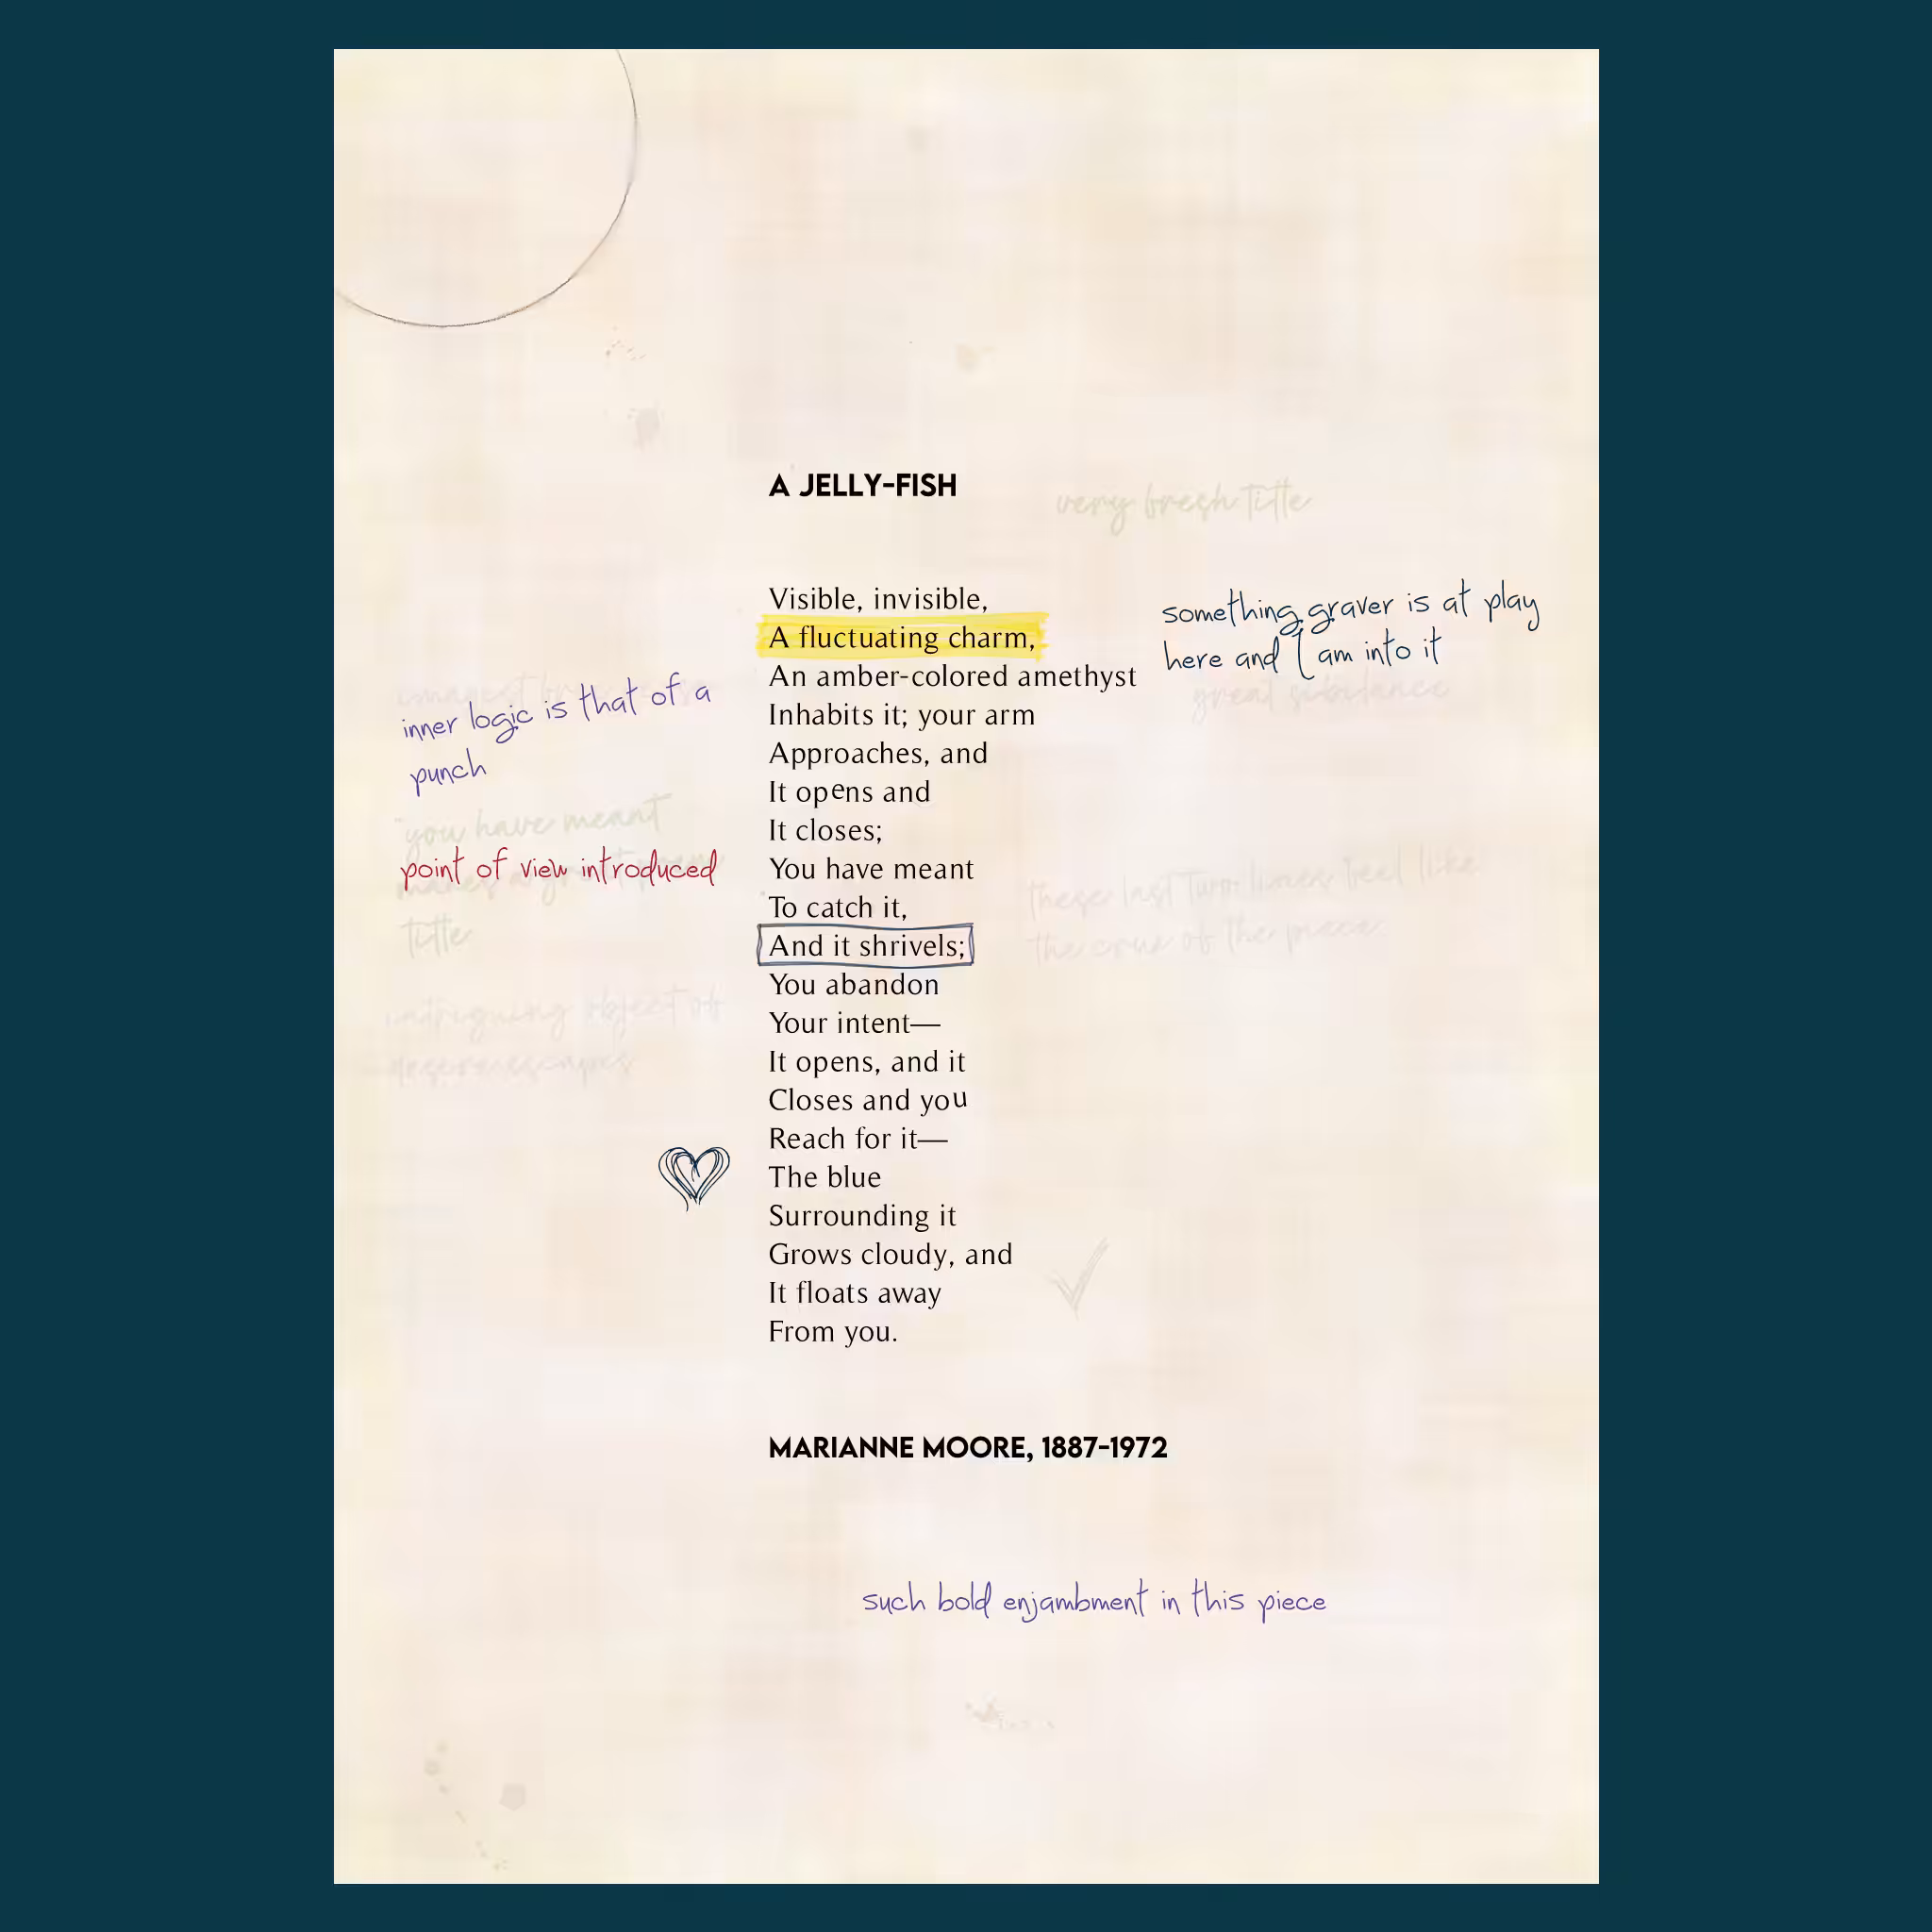 A JELLY-FISH
very fresh title
Visible, invisible,
A fluctuating charm,
An amber-colored amethyst
Inhabits it; your arm
Approaches, and
It opens and
It closes;
You have meant
To catch it,
And it shrivels;
You abandon
Your intent—
It opens, and it
Closes and you
Reach for it—
The blue
Surrounding it
Grows cloudy, and
It floats away
From you.
MARIANNE MOORE, 1887-1972
something graver is at play
here and I am into it
great sibilance
inner logic is that of a
punch
"you have meant
title
point of view introduced
these last two lines feel like
the crux of the piece.
intriguing object of
such bold enjambment in this piece